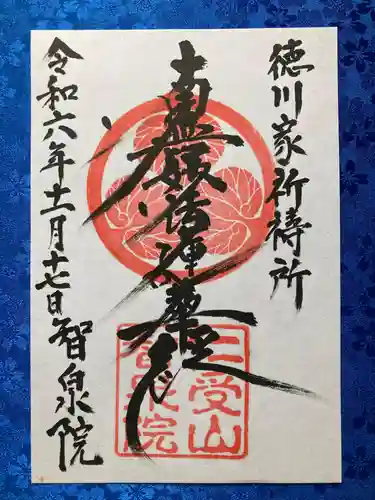 徳川家祈祷所
南無妙法蓮華経
令和六年十一月十七日 智泉院
三受山
智泉院